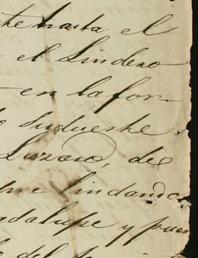 hasta el
el Lindero
en la for-
Sudueste
Lazaro, de
lindando
dalupe y pues